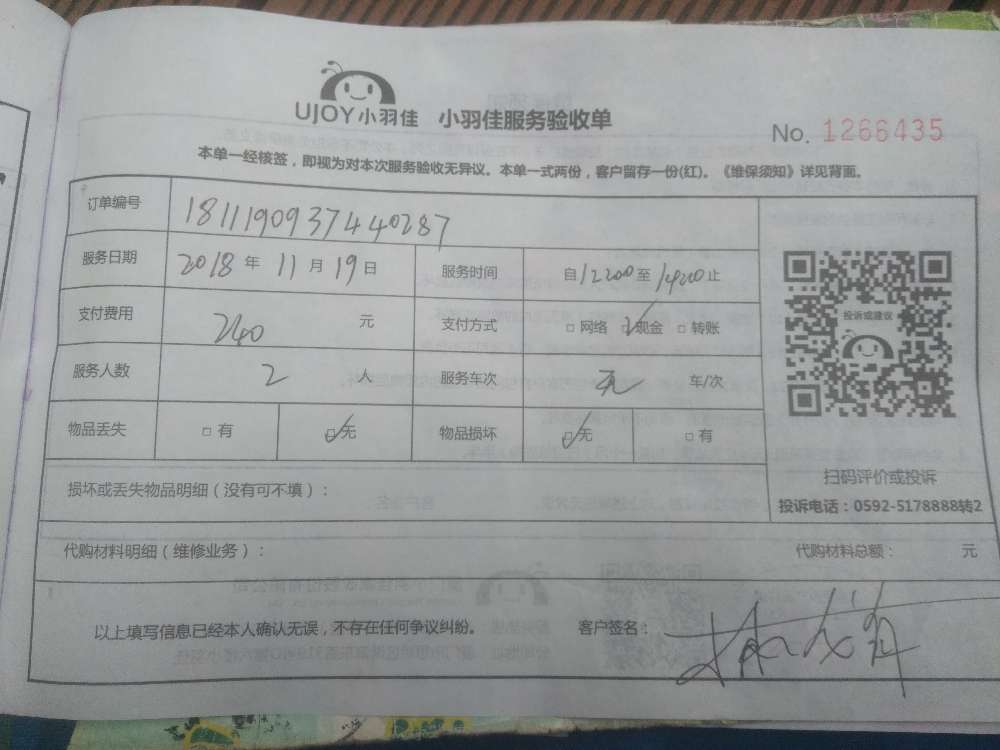 UJOY小羽佳 小羽佳服务验收单
No. 1266435
本单一经核签，即视为对本次服务验收无异议。本单一式两份，客户留存一份(红)。《维保须知》详见背面。
订单编号 1811190937440287
服务日期 2018 年 11 月 19 日 服务时间 自 1200 至 1400 止
支付费用 240 元 支付方式 □ 网络 ☑ 现金 □ 转账
服务人数 2 人 服务车次 无 车/次
物品丢失 □ 有 ☑ 无 物品损坏 ☑ 无 □ 有
损坏或丢失物品明细（没有可不填）：
代购材料明细（维修业务）： 代购材料总额： 元
以上填写信息已经本人确认无误，不存在任何争议纠纷。 客户签名：
投诉或建议
扫码评价或投诉
投诉电话：0592-5178888转2